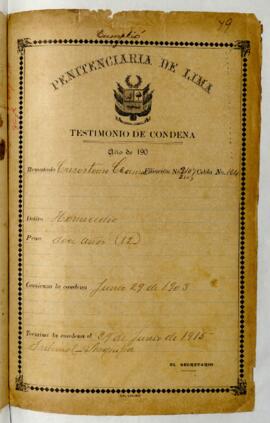 Cumplió
79
PENITENCIARIA DE LIMA
TESTIMONIO DE CONDENA
Año de 190
Rematado Filiación No. Celda No.
Delito Homicidio
Pena años (12)
Comienza la condena Junio 29 de 1903
Termina la condena el 29 de junio de 1915
Tribunal
EL SECRETARIO